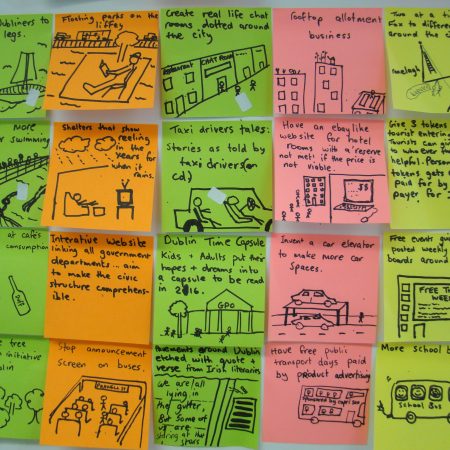 Dubliners to
legs.
Floating parks on the
liffey
Create real life chat
rooms dotted around
the city
Restaurant
CHAT ROOM
rooftop allotment
business
Two at a
Fax to differe
around the ci
more
swimming
Shelters that show
reeling in
the years for
when it
rains.
Taxi drivers tales:
Stories as told by
taxi drivers (on
cd)
Have an ebay like
website for hotel
rooms with a 'reserve
not met' if the price is
not viable.
$$
Give 3 tokens
tourist entering
Tourists can giv
to who ever is
helpful. Person
tokens gets
paid for by
payer for
at café's
consumption
Interative Website
linking all government
departments ... aim
to make the civic
structure comprehen-
sible.
Dublin Time Capsule
Kids + Adults put their
hopes + dreams into
a capsule to be read
in 2016.
GPO
Invent a car elevator
to make more car
spaces.
Free events gui
posted weekly
boards around
FREE
WEE
tree
initiative
Stop announcement
screen on buses.
PARNELL ST
Pavements around Dublin
etched with quote &
verse from Irish literaries
we are all
lying in
the gutter,
But some of
us are
staring at the
stars
Have free public
transport days paid
by product advertising
More school b
School Bus